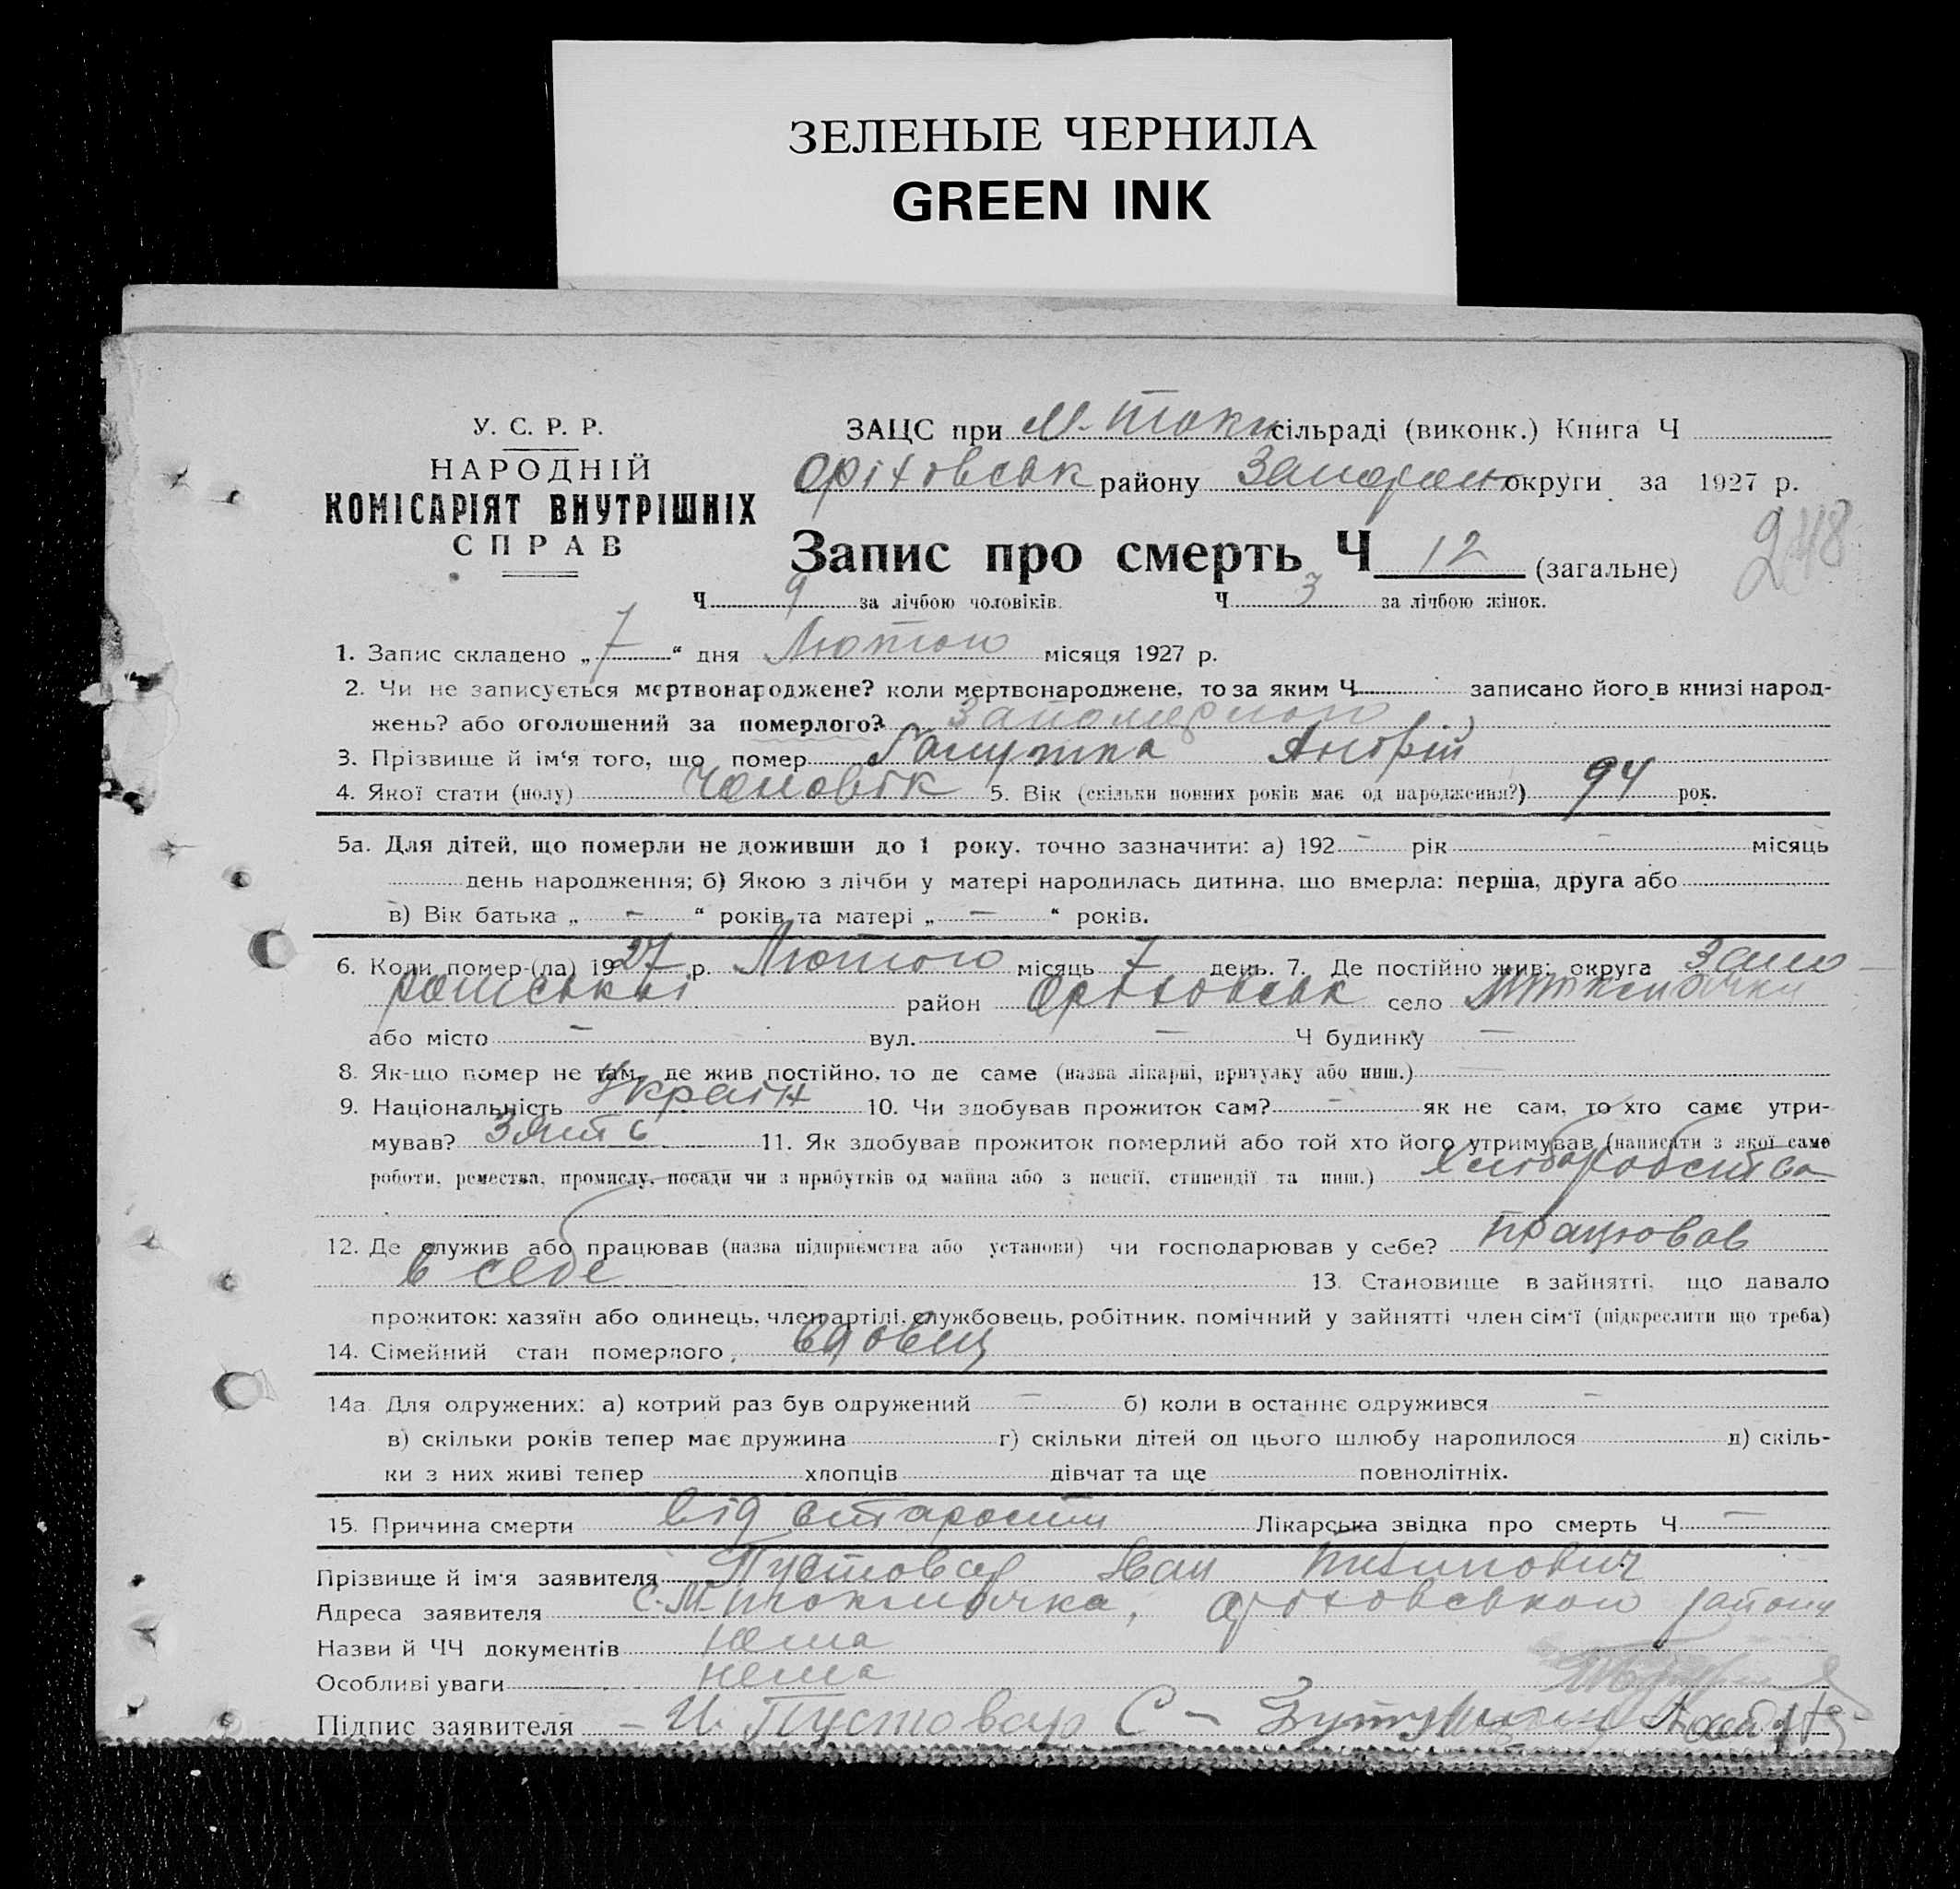 ЗЕЛЕНЫЕ ЧЕРНИЛА
GREEN INK
У. С. Р. Р.
НАРОДНІЙ
КОМІСАРІЯТ ВНУТРІШНІХ
СПРАВ
ЗАЦС при М-Токм сільраді (виконк.) Книга Ч
Оріховськ району Запоріж округи за 1927 р.
248
Запис про смерть Ч 12 (загальне)
Ч 9 за лічбою чоловіків. Ч 3 за лічбою жінок.
1. Запис складено „ 7 “ дня Лютого місяця 1927 р.
2. Чи не записується мертвонароджене? коли мертвонароджене, то за яким Ч записано його в книзі народ-
жень? або оголошений за померлого? За померлого
3. Прізвище й ім‘я того, що помер Галушка Андрій
4. Якої стати (полу) Чоловік 5. Вік (скільки повних років має од народження?) 94 рок.
5а. Для дітей, що померли не доживши до 1 року, точно зазначити: а) 192 – рік – місяць
день народження; б) Якою з лічби у матері народилась дитина, що вмерла: перша, друга або
в) Вік батька „ – “ років та матері „ – “ років.
6. Коли помер-(ла) 1927 р. Лютого місяць 7 день. 7. Де постійно жив: округа Запо
район Оріховськ село
або місто – вул. – Ч будинку –
8. Як-що помер не там, де жив постійно, то де саме (назва лікарні, притулку або инш.) –
9. Національність Україн 10. Чи здобував прожиток сам? – як не сам, то хто саме утри-
мував? Зять 11. Як здобував прожиток померлий або той хто його утримував (написати з якої саме
роботи, ремества, промислу, посади чи з прибутків од майна або з пенсії, стипендії та инш.) Хліборобства
12. Де служив або працював (назва підприємства або установи) чи господарював у себе? працював
в себе 13. Становище в зайнятті, що давало
прожиток: хазяїн або одинець, член артілі, службовець, робітник, помічний у зайнятті член сім‘ї (підкреслити що треба)
14. Сімейний стан померлого, вдовец
14а. Для одружених: а) котрий раз був одружений – б) коли в останнє одружився –
в) скільки років тепер має дружина г) скільки дітей од цього шлюбу народилося д) скіль-
ки з них живі тепер хлопців дівчат та ще повнолітніх.
15. Причина смерти від старости Лікарська звідка про смерть Ч –
Прізвище й ім‘я заявителя Пустовар Іван
Адреса заявителя С. М-Токмачка, Оріховського району
Назви й ЧЧ документів нема
Особливі уваги нема
Підпис заявителя – И. Пустовар С –